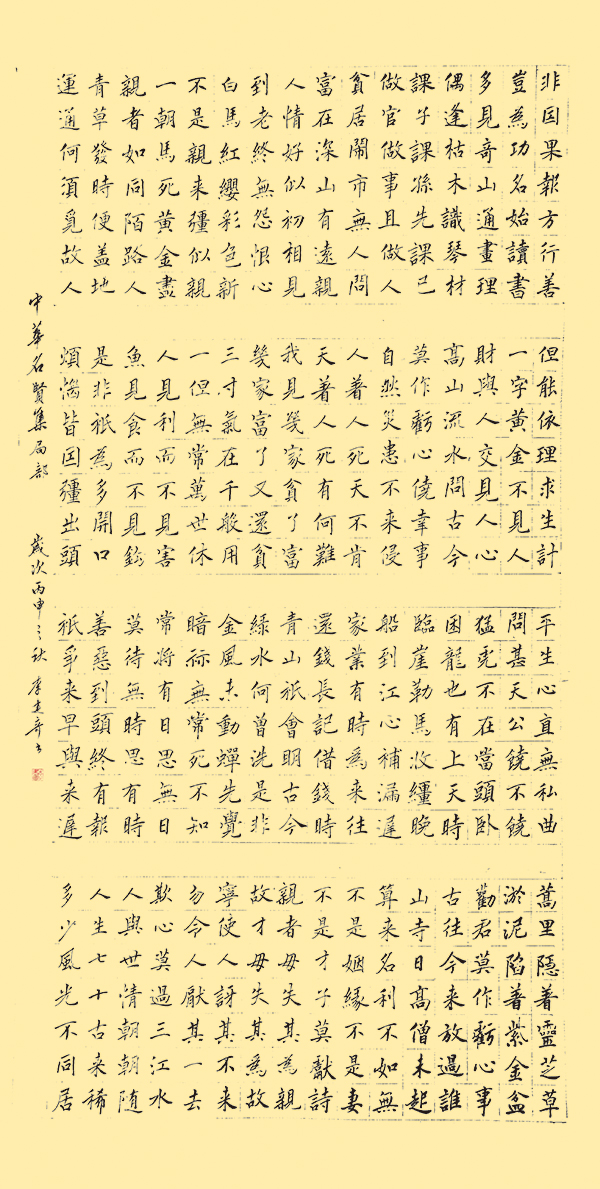 非因果報方行善
豈為功名始讀書
多見奇山通畫理
偶逢枯木識琴材
課子課孫先課己
做官做事且做人
貧居鬧市無人問
富在深山有遠親
人情好似初相見
到老終無怨恨心
白馬紅纓彩色新
不是親来彊似親
一朝馬死黃金盡
親者如同陌路人
青草發時便蓋地
運通何須覓故人
但能依理求生計
一字黃金不見人
財與人交見人心
高山流水問古今
莫作虧心僥幸事
自然災患不来侵
人著人死天不肯
天著人死有何難
我見幾家貧了富
幾家富了又還貧
三寸氣在千般用
一但無常萬世休
人見利而不見害
魚見食而不見鈎
是非祇為多開口
煩惱皆因彊出頭
平生心直無私曲
問甚天公饒不饒
猛虎不在當頭卧
困龍也有上天時
臨崖勒馬收繮晚
船到江心補漏遲
家業有時為来往
還錢長記借錢時
青山祇會明古今
綠水何曾洗是非
金風未動蟬先覺
暗祘無常死不知
常將有日思無日
莫待無時思有時
善惡到頭終有報
祇爭来早與来遲
蒿里隱着靈芝草
淤泥陷着紫金盆
勸君莫作虧心事
古往今来放過誰
山寺日高僧未起
算来名利不如無
不是姻緣不是妻
不是才子莫獻詩
親者毋失其為親
故才毋失其為故
寧使人訝其不来
勿令人厭其一去
欺心莫過三江水
人與世情朝朝随
人生七十古来稀
多少風光不同居
中華名賢集局部
歲次丙申之秋 李建奇書